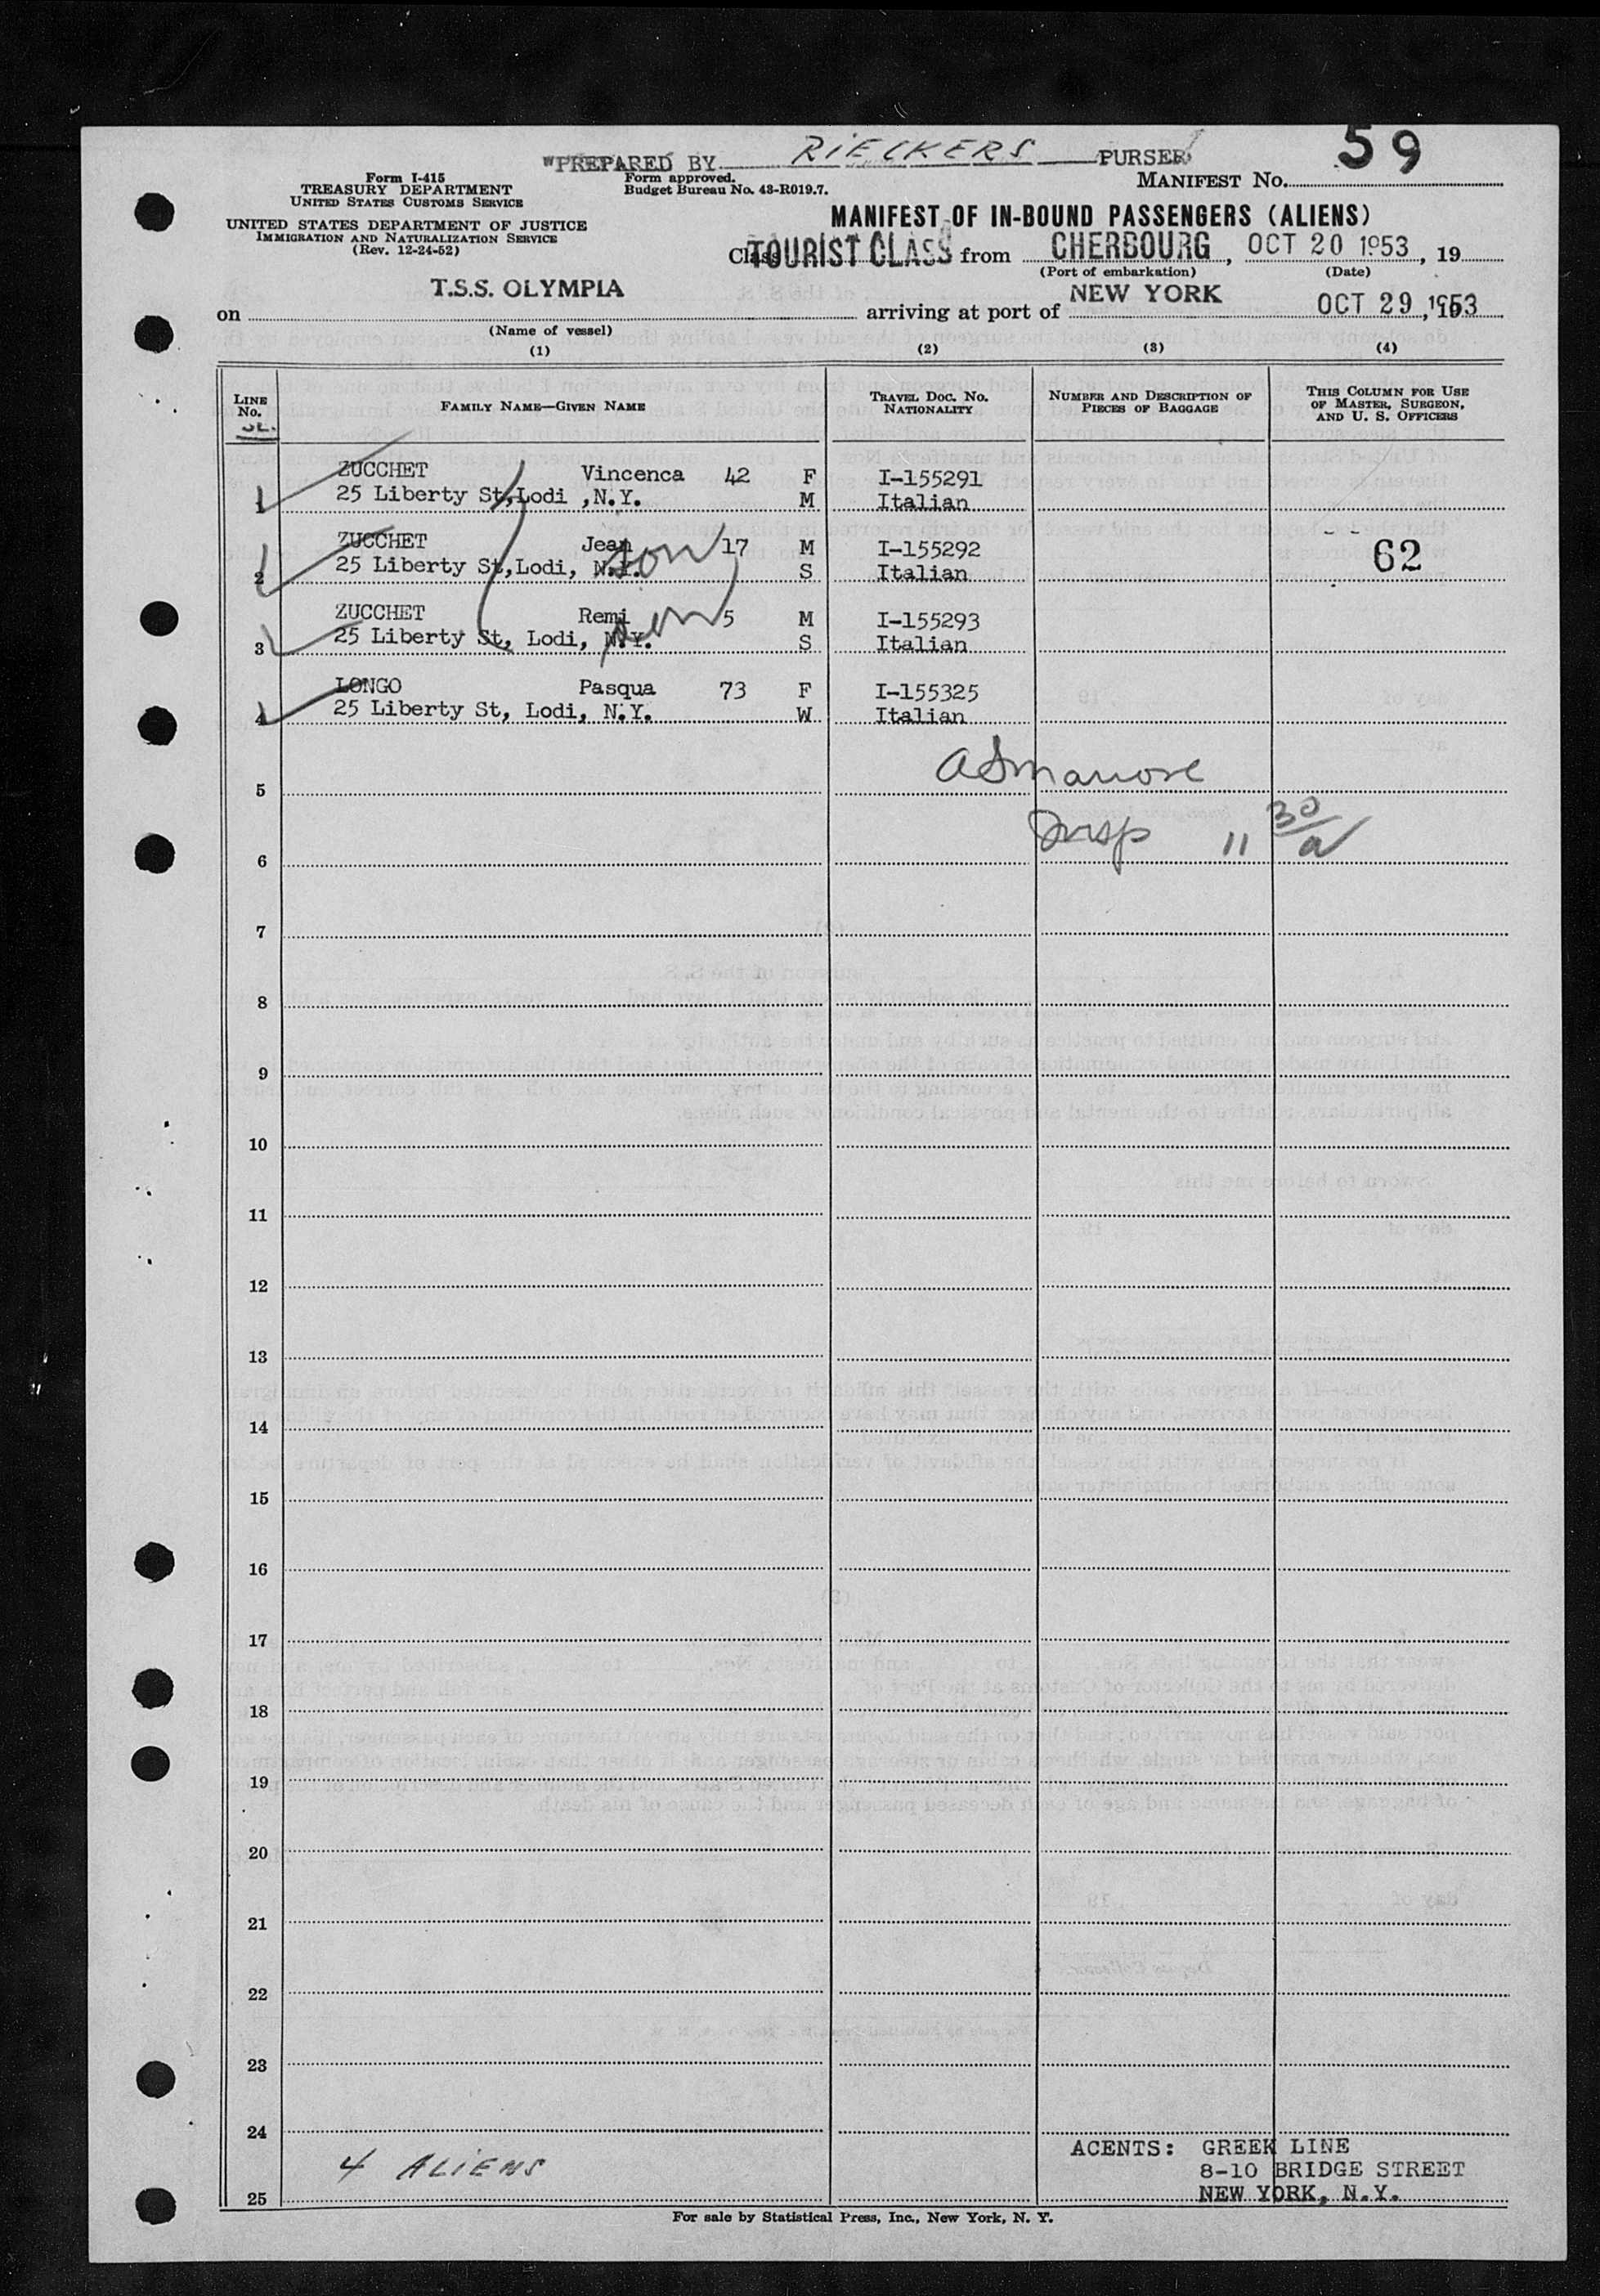 "PREPARED BY RIECKERS PURSER
59
Form I-415
TREASURY DEPARTMENT
UNITED STATES CUSTOMS SERVICE
UNITED STATES DEPARTMENT OF JUSTICE
IMMIGRATION AND NATURALIZATION SERVICE
(Rev. 12-24-52)
Form approved.
Budget Bureau No. 43-R019.7.
MANIFEST NO.
MANIFEST OF IN-BOUND PASSENGERS (ALIENS)
Class TOURIST CLASS from CHERBOURG, OCT 20 1953, 19
(Port of embarkation) (Date)
T.S.S. OLYMPIA NEW YORK
on arriving at port of OCT 29 1953, 19
(Name of vessel)
(1) (2) (3) (4)
LINE NO. FAMILY NAME—GIVEN NAME TRAVEL DOC. NO. NATIONALITY NUMBER AND DESCRIPTION OF PIECES OF BAGGAGE THIS COLUMN FOR USE OF MASTER, SURGEON, AND U. S. OFFICERS
ZUCCHET Vincenca 42 F I-155291
1 25 Liberty St,Lodi ,N.Y. M Italian
ZUCCHET Jean son 17 M I-155292 62
2 25 Liberty St,Lodi, N.Y. S Italian
ZUCCHET Remi 5 M I-155293
3 25 Liberty St, Lodi, N.Y. S Italian
LONGO Pasqua 73 F I-155325
4 25 Liberty St, Lodi, N.Y. W Italian
5
Insp 11 30/a
6
7
8
9
10
11
12
13
14
15
16
17
18
19
20
21
22
23
24
4 ALIENS
ACENTS: GREEK LINE
8-10 BRIDGE STREET
25 NEW YORK, N.Y.
For sale by Statistical Press, Inc., New York, N. Y.